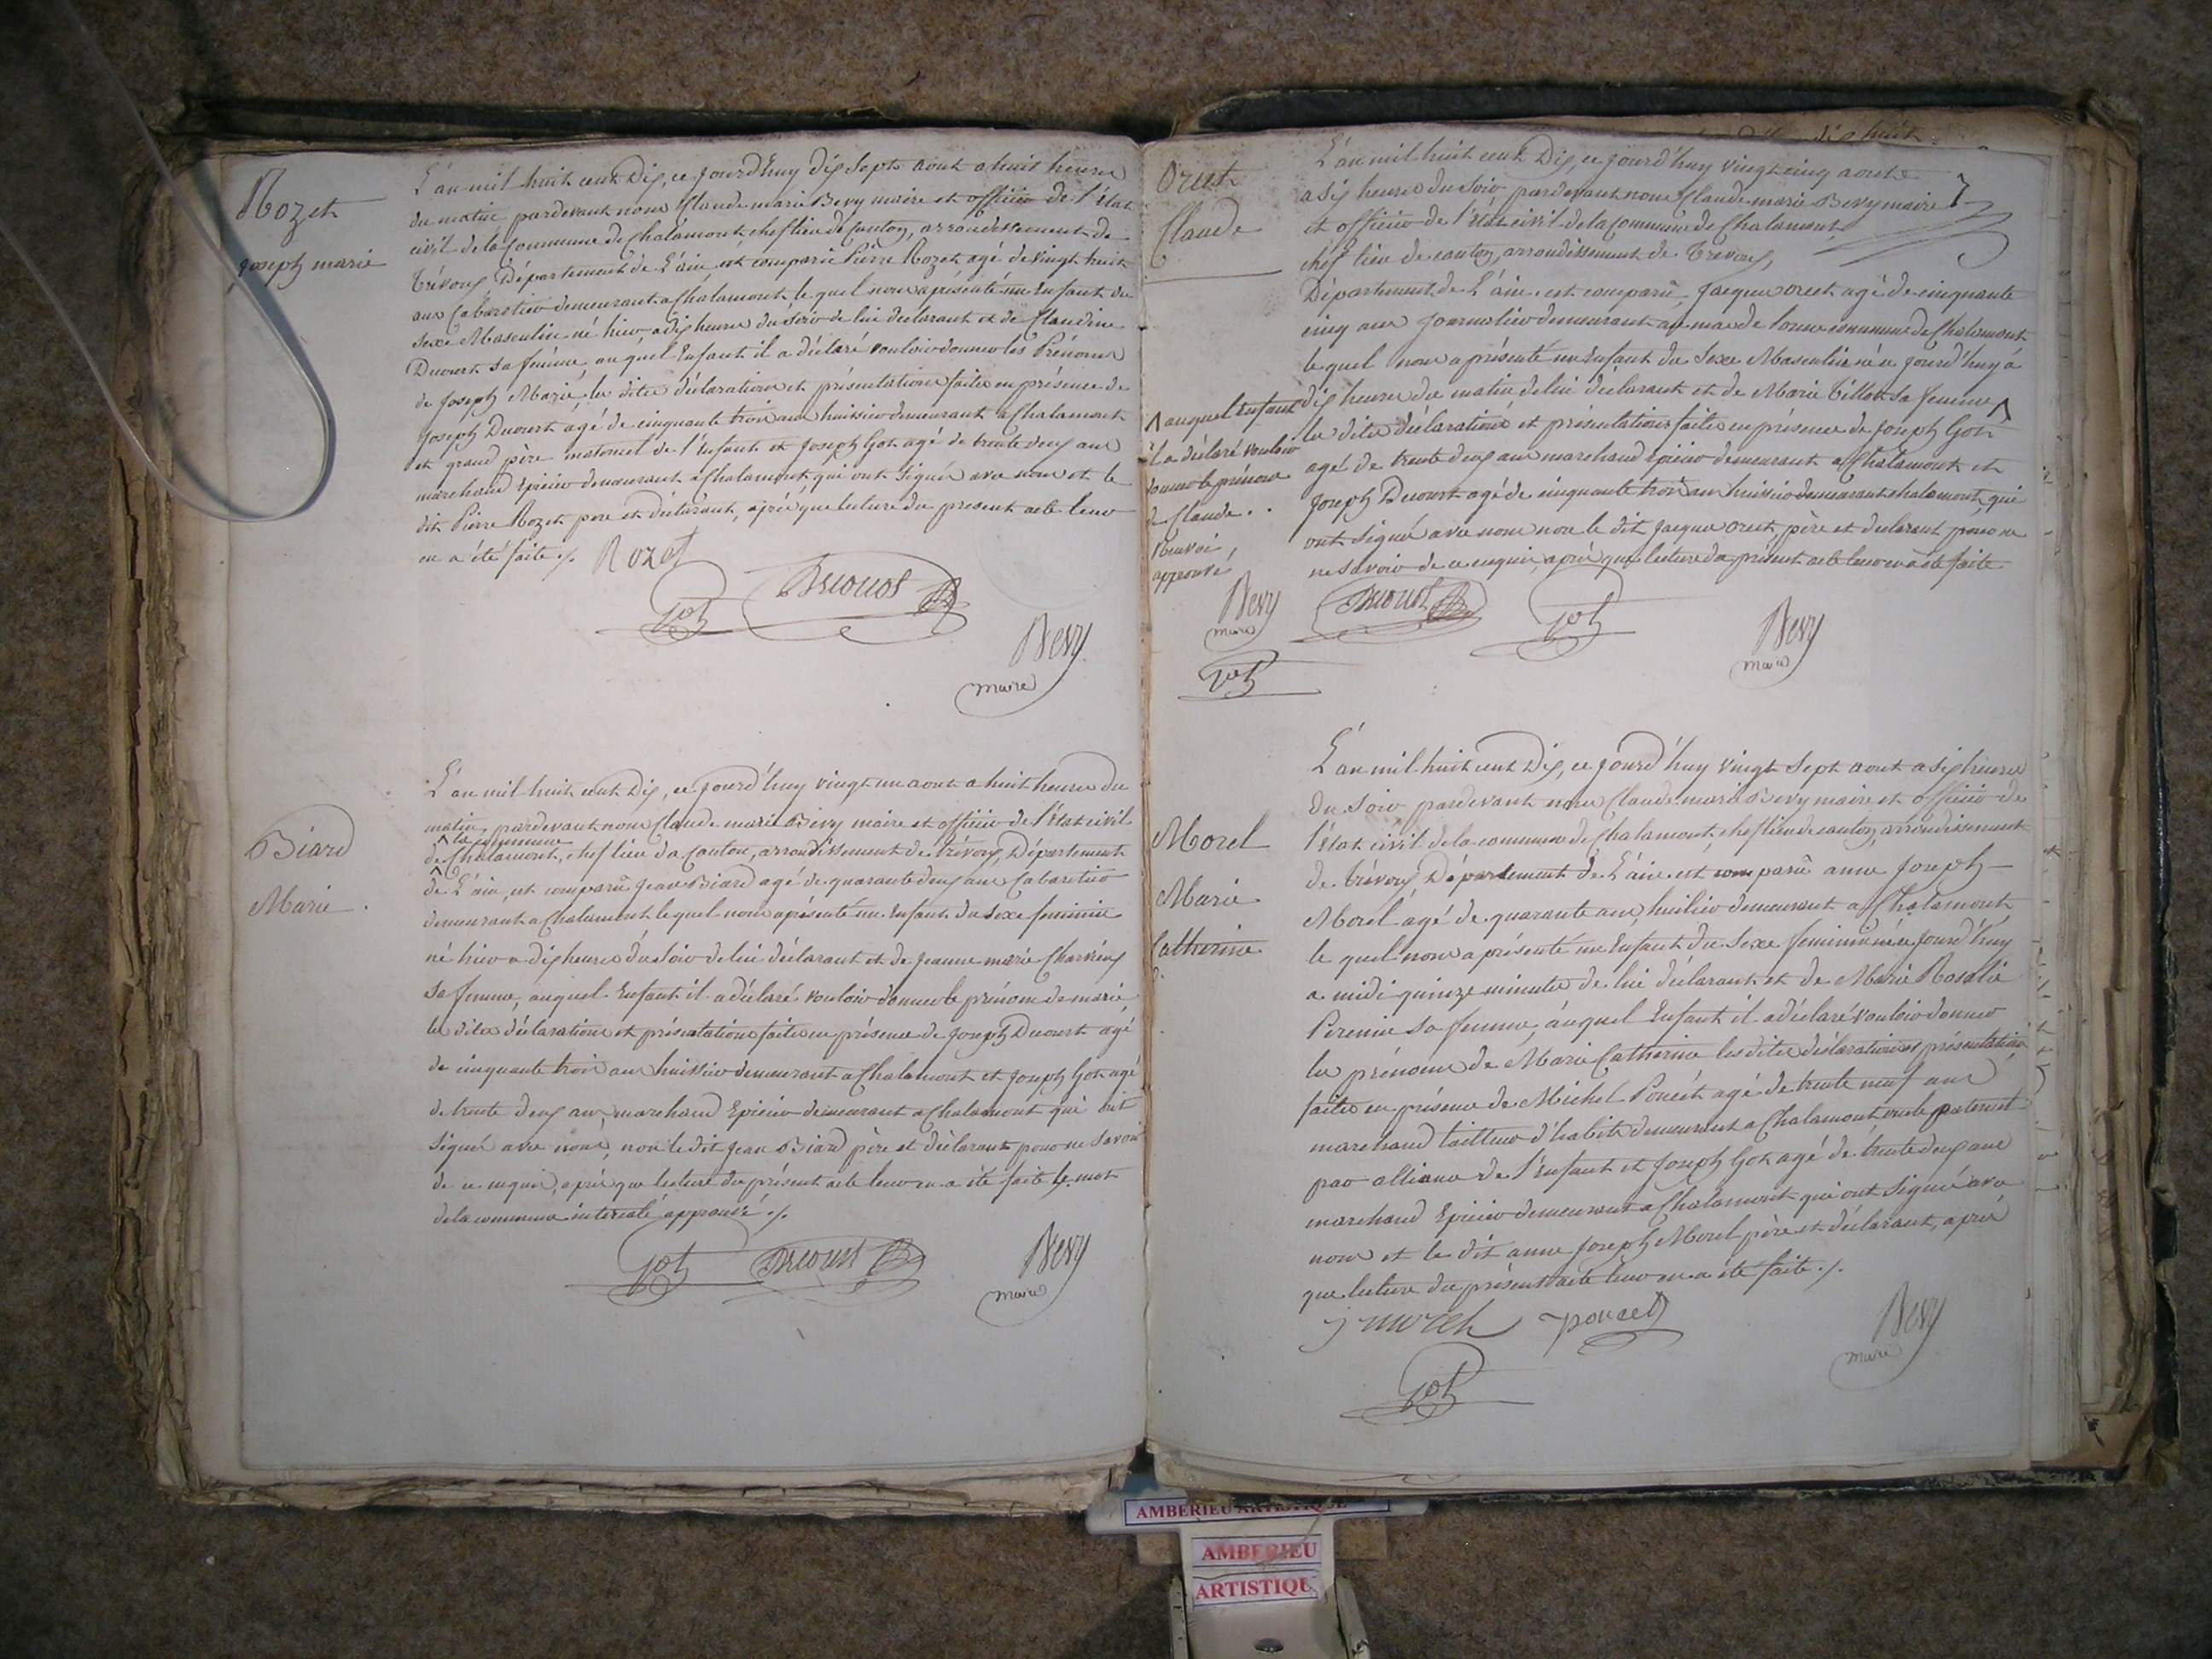 Rozet
Joseph marie
L'an mil huit cent Dix, ce jourd'huy dix sept aout a huit heures
du matin pardevant nous Claude marie Bevy maire et officier de l'état
civil de la Commune de Chalamont, chef lieu de Canton, arrondissement de
Trévoux, Département de L'ain, est comparu Pierre Rozet agé de vingt huit
ans Cabaretier demeurant a Chalamont, le quel nous a présenté un Enfant du
sexe Masculin né hier, a dix heures du soir de lui declarant et de Claudine
Ducurt sa femme, au quel Enfant il a déclaré vouloir donner les Prénoms
de Joseph Marie, les dites déclaration et présentation faites en présence de
Joseph Ducurt agé de cinquante trois ans huissier demeurant a Chalamont
et grand père maternel de l'Enfant et Joseph Got agé de trente deux ans
marchand Epicier demeurant a Chalamont, qui ont signé avec nous et le
dit Pierre Rozet pere et déclarant, après que lecture du present acte leur
en a été faite ./.
Rozet
Got
Bevy
maire
Biard
Marie
L'an mil huit cent Dix, ce jourd'huy vingt un aout a huit heures du
matin, pardevant nous Claude marie Bevy maire et officier de l'état civil
la commune
de Chalamont, chef lieu du Canton, arrondissement de trévoux, Département
de L'ain, est comparu Jean Biard agé de quarante deux ans Cabaretier
demeurant a Chalamont lequel nous a présenté un Enfant du sexe feminin
né hier a dix heures du soir de lui déclarant et de Jeanne marie
sa femme, auquel Enfant il a déclaré vouloir donner le prénom de marie,
les dites déclaration et présentation faites en présence de Joseph Ducurt agé
de cinquante trois ans huissier demeurant a Chalamont et Joseph Got agé
de trente deux ans, marchand Epicier demeurant a Chalamont qui ont
signé avec nous, non le dit Jean Biard père et déclarant pour ne savoir
de ce enquis, après que lecture du présent acte leur en a été faite le mot
de la commune intercalé approuvé ./.
Got
Bevy
maire
Orcet
Claude
L'an mil huit cent Dix, ce jourd'huy vingt cinq aout
a six heures du soir pardevant nous Claude marie Bevy maire
et officier de l'état civil de la Commune de Chalamont,
chef lieu de canton, arrondissement de Trevoux,
Département de L'ain, est comparu Jacques Orcet agé de cinquante
cinq ans journalier demeurant au commune de Chalamont
lequel nous a présenté un Enfant du sexe Masculin né ce jourd'huy à
dix heures du matin de lui déclarant et de Marie Tillot sa femme
les dites déclaration et présentation faites en présence de Joseph Got
agé de trente deux ans marchand Epicier demeurant a Chalamont et
Joseph Ducurt agé de cinquante trois ans huissier demeurant a Chalamont, qui
ont signé avec nous non le dit Jacques Orcet, père et declarant pour ne
savoir de ce enquis, après que lecture du présent acte leur en a été faite
auquel Enfant
il a déclaré vouloir
donner le prénom
de Claude.
Renvoi
approuvé
Bevy
maire
Got
Got
Bevy
maire
Morel
Marie
Catherine
L'an mil huit cent Dix, ce jourd'huy vingt sept aout a six heures
du soir pardevant nous Claude marie Bevy maire et officier de
l'état civil de la commune de Chalamont, chef lieu de canton, arrondissement
de trévoux Département de L'ain est comparu anne Joseph
Morel agé de quarante ans, huilier demeurant a Chalamont,
le quel nous a présenté un Enfant du sexe feminin né ce jourd'huy
a midi quinze minutes de lui déclarant et de Marie Rosalie
sa femme, auquel Enfant il a déclaré vouloir donner
les prénoms de Marie Catherine les dites déclaration et présentation
faites en présence de Michel Poncet agé de trente neuf ans
marchand tailleur d'habits demeurant a Chalamont oncle paternel
par alliance de l'Enfant et Joseph Got agé de trente deux ans
marchand Epicier demeurant a Chalamont qui ont signé avec
nous et le dit anne Joseph Morel père et déclarant, après
que lecture du présent acte leur en a été faite ./.
j morel
poncet
Bevy
maire
Got
AMBERIEU ARTISTIQUE
AMBERIEU
ARTISTIQU